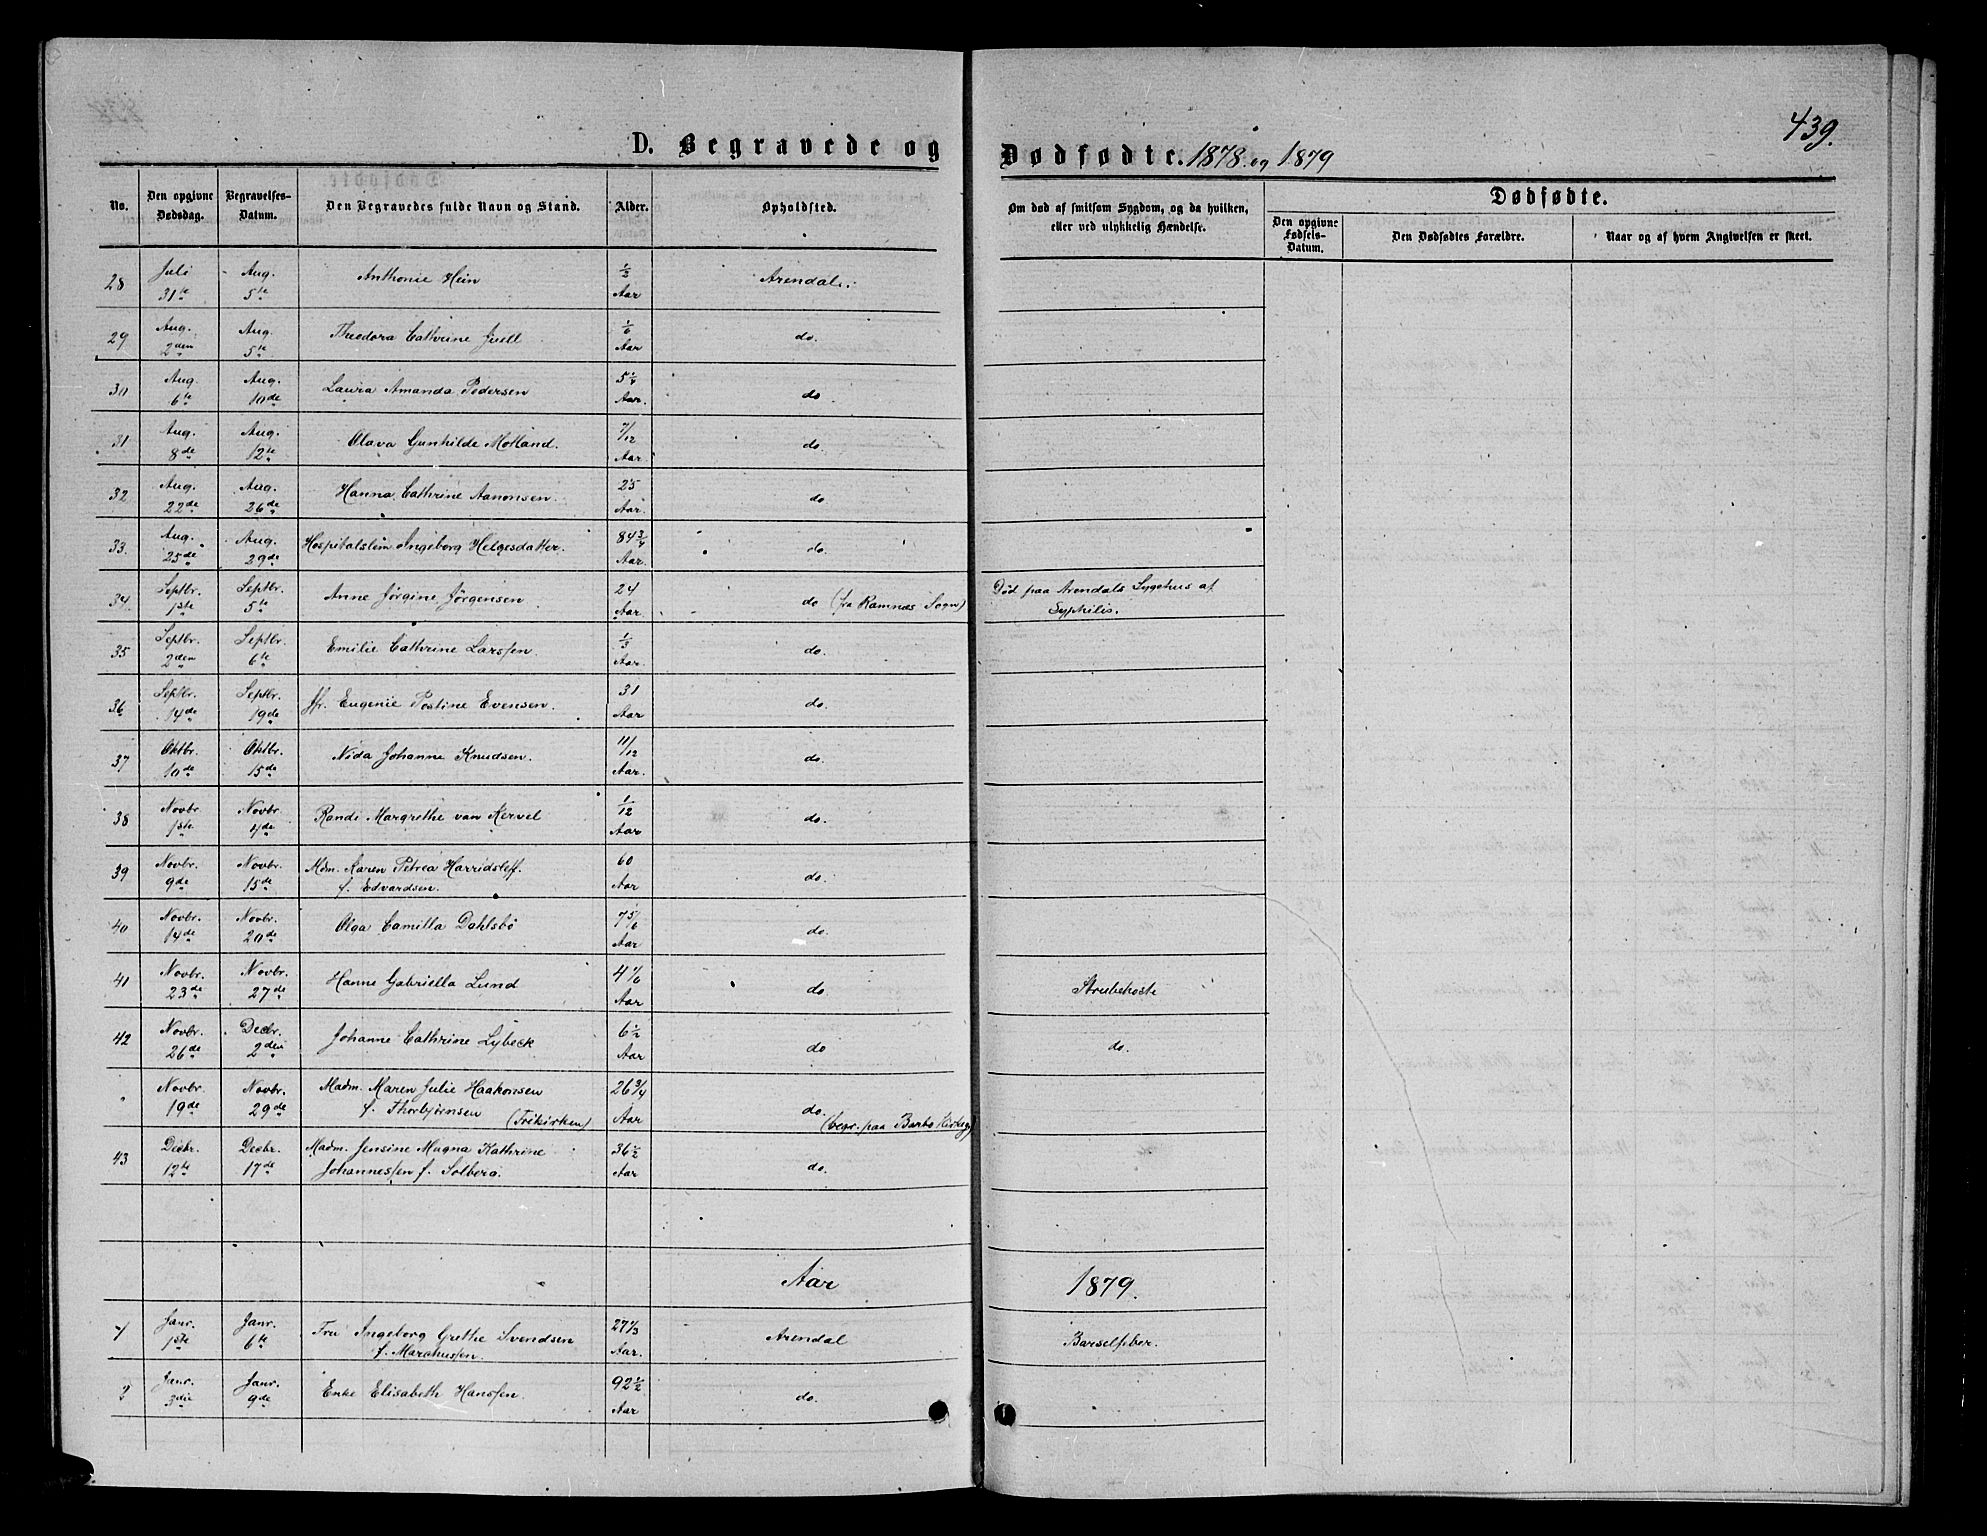 439.
D. Begravede og Dødfødte. 1878 og 1879
No. Den opgivne Dødsdag. Begravelses-Datum. Den Begravedes fulde Navn og Stand. Alder. Opholdsted. Om død af smitsom Sygdom, og da hvilken, eller ved ulykkelig Hændelse.
Dødfødte.
Den opgivne Fødsels-Datum. Den Dødfødtes Forældre. Naar og af hvem Angivelsen er skeet.
28 Juli 31te Aug. 5te Anthonie Hein 1/2 Aar Arendal.
29 Aug. 2den Aug. 5te Theodora Cathrine Juell 1/6 Aar do.
30 Aug. 6te Aug. 10de Laura Amanda Pedersen 5 1/4 Aar. do.
31 Aug. 8de Aug. 12te Olava Gunhilde Molland. 7/12 Aar. do.
32 Aug. 22de Aug. 26de Hanna Cathrine Aanonsen. 25 Aar. do.
33. Aug. 25de Aug. 29de Hospitalslem Ingeborg Helgesdatter. 84 3/4 Aar. do.
34 Septbr. 1ste Septbr. 5te Anne Jörgine Jörgensen 24 Aar. do (fra Ramnæs Sogn) Död paa Arendals Sygehus af
Syphilis.
35 Septbr. 2den Septbr. 6te Emilie Cathrine Larssen. 1/3 Aar. do.
36 Septbr. 14de Septbr. 19de Jfr. Eugenie Postine Evensen. 31 Aar do.
37 Oktbr. 10de Oktbr. 15de Nida Johanne Knudsen. 11/12 Aar. do.
38 Novbr. 1ste Novbr. 4de Randi Margrethe van Kervel 1/12 Aar do.
39 Novbr. 9de Novbr. 15de Mdm. Karen Petrea Harridsleff.
f. Edvardsen. 60 Aar do.
40 Novbr. 14de Novbr. 20de Olga Camilla Dahlsbö 7 5/6 Aar do.
41 Novbr. 23de Novbr. 27de Hanne Gabriella Lund 4 1/6 Aar. do Strubehoste
42 Novbr. 26de Decbr. 2den Johanne Cathrine Lybeck 6 1/2 Aar do do.
" Novbr. 19de Novbr. 29de Madm. Maren Julie Haakonsen
f. Thorbjörnsen (Frikirken) 26 3/4 Aar do. (begr. paa Barbo Kirkeg)
43 Decbr. 12te Decbr. 17de Madm. Jensine Mugna Kathrine
Johannessen f. Solberg. 36 1/2 Aar do.
Aar 1879.
1 Janr. 1ste Janr. 6te Fru Ingeborg Grethe Svendsen
f. Marcussen. 27 1/3 Aar. Arendal Barselfeber.
2 Janr. 3die Janr. 9de Enke Elisabeth Hanssen. 92 1/2 Aar do.